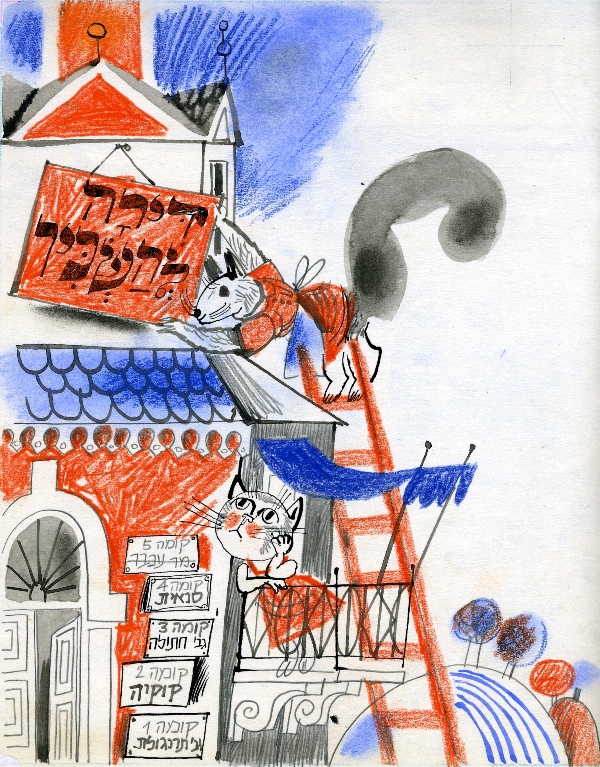 דִּירָה
לְהַשְׂכִּיר
קומה 5
מר עכבר
קומה 4
סנאית
קומה 3
גב' חתולה
קומה 2
קוקיה
קומה 1
גב' תרנגולת